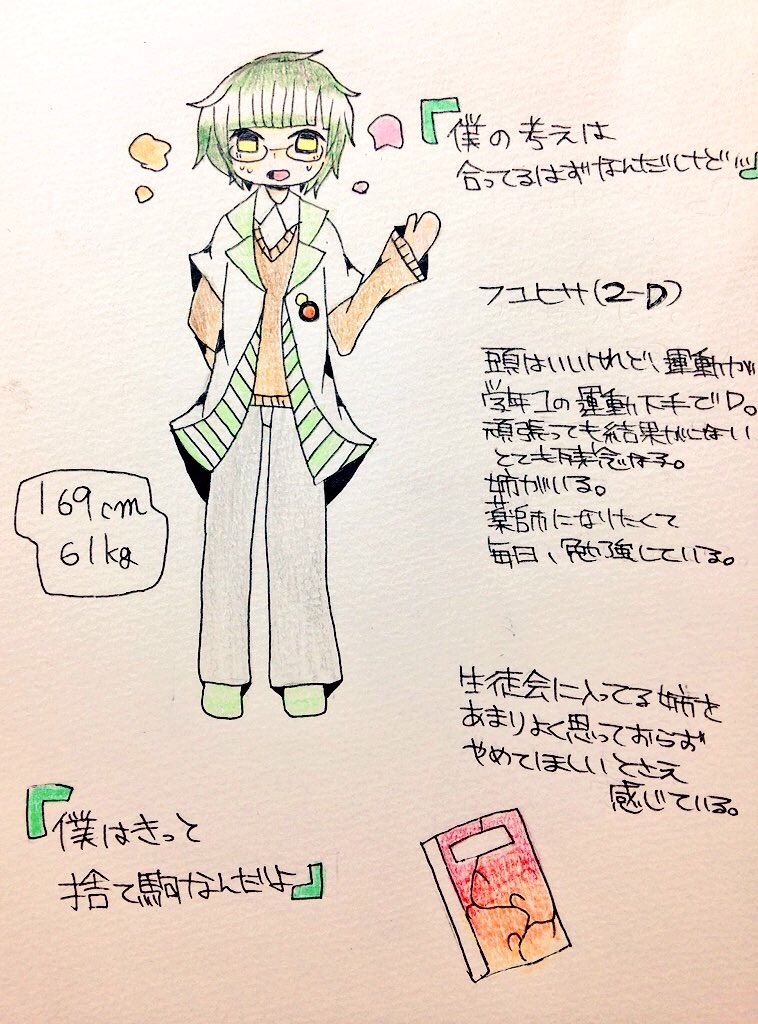 『僕の考えは
合ってるはずなんだけど…』
フユヒサ(2-D)
頭はいいけれど、運動が
学年1の運動下手でD。
頑張っても結果がでない
とても残念な子。
姉がいる。
薬師になりたくて
毎日、勉強している。
169cm
61kg
生徒会に入ってる姉を
あまりよく思っておらず
やめてほしいとさえ
感じている。
『僕はきっと
捨て駒なんだよ』